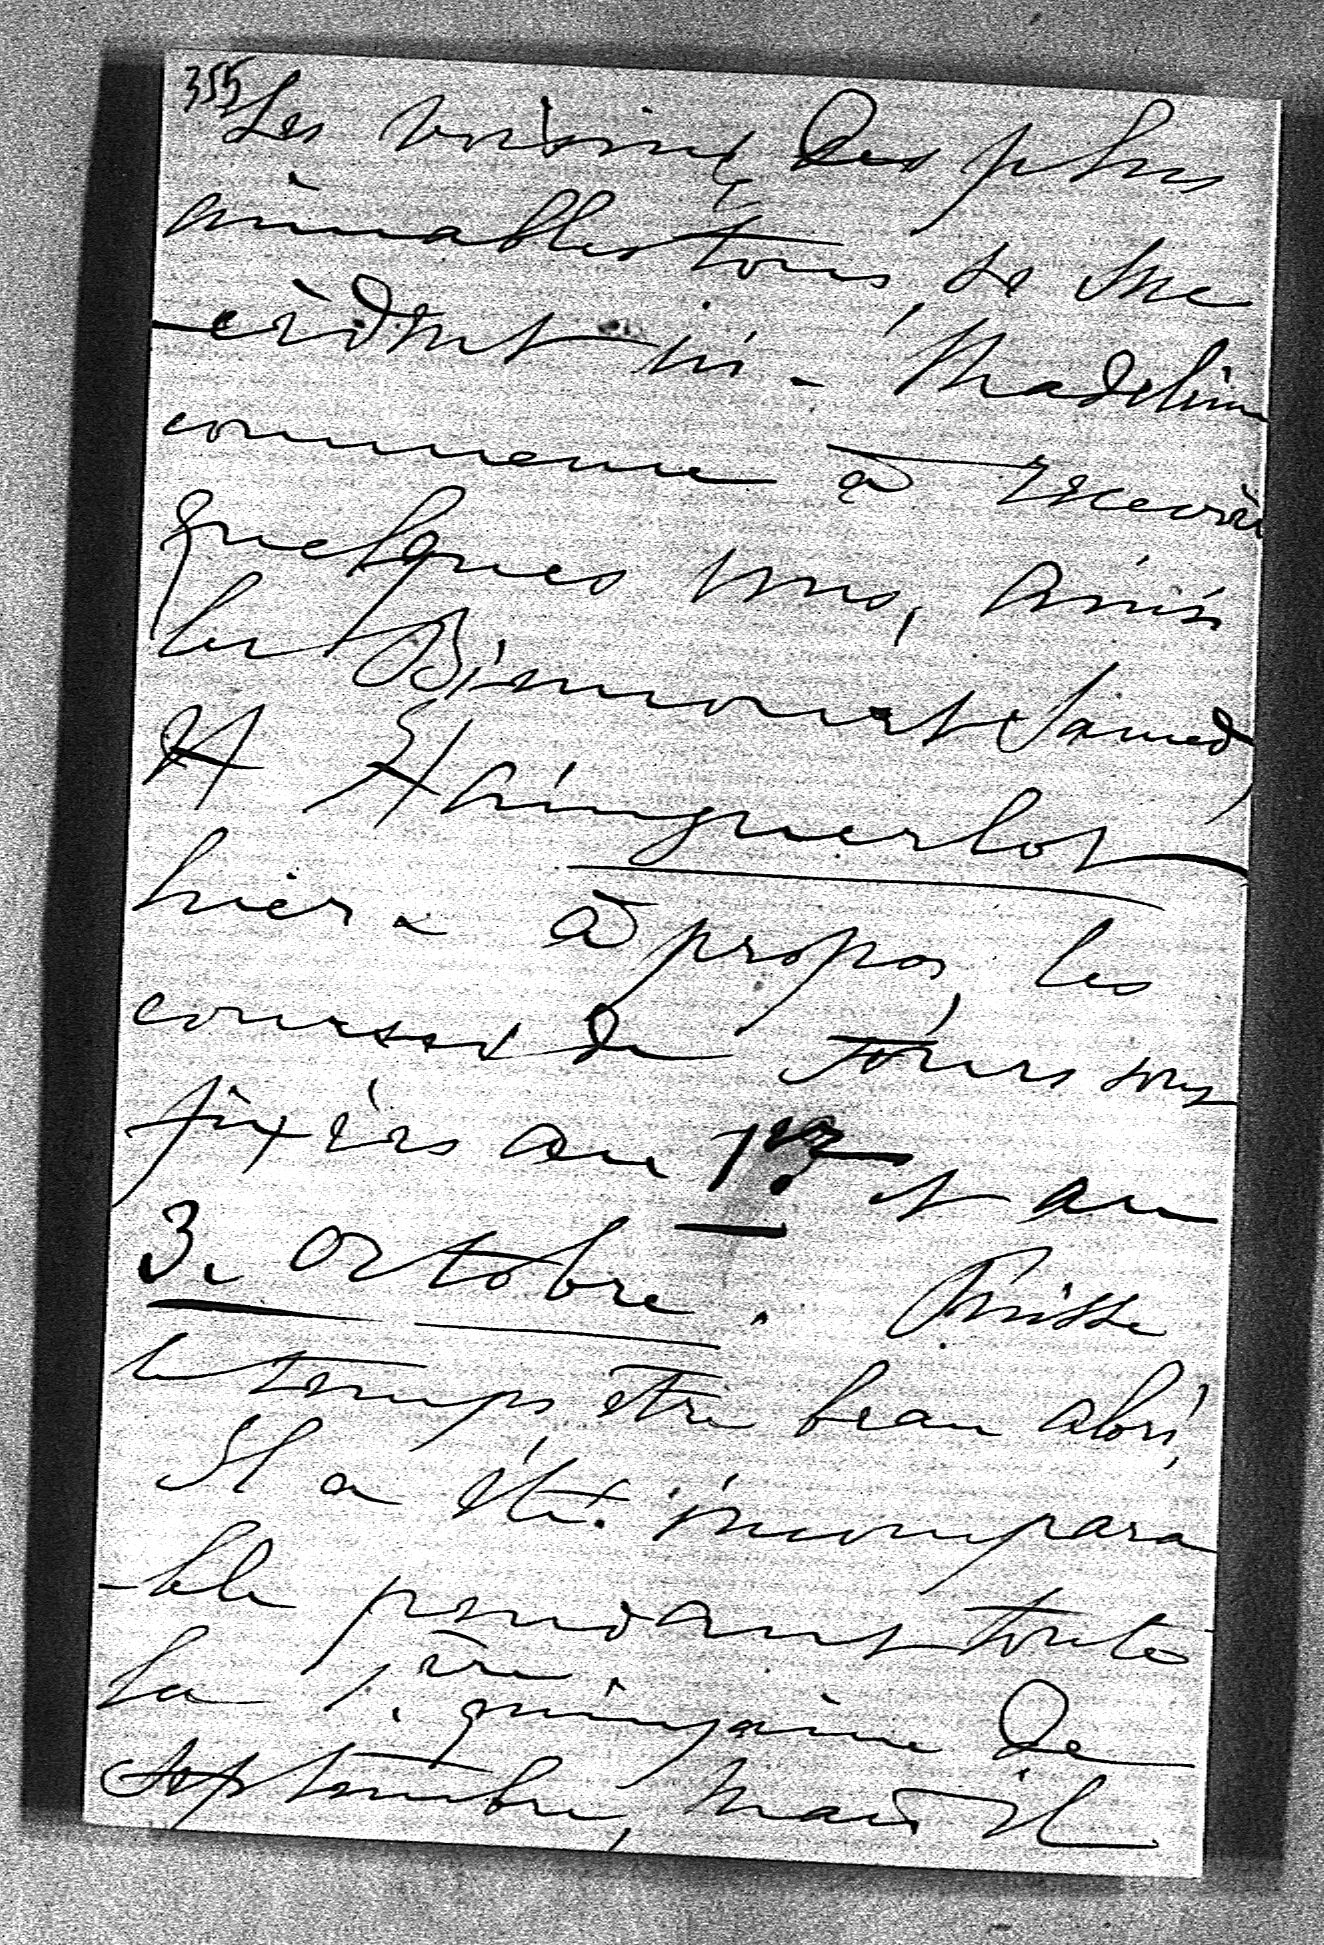 355
Les voisins, des plus
aimables tous, se suc
-cèdent ici - Madeleine
commence à recevoir
quelques uns, ainsi
les samedi
et Hainguerlot
hier - à propos, les
courses de Tours sont
fixées au 1er et au
3. octobre. Puisse
le temps être beau alors,
Il a été incompara
-ble pendant toute
la 1.ère quinzaine de
septembre, mais il